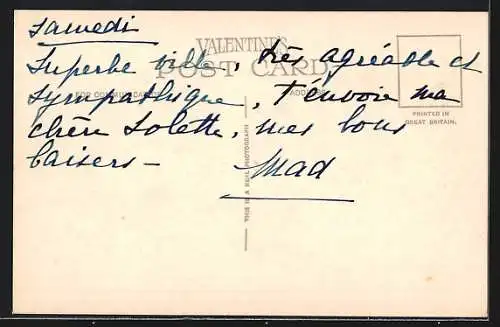 Samedi
VALENTINE'S
POST CARD
Superbe ville, très agréable et
FOR COMMUNICATION
ADDRESS
sympathique, t'envoie ma
chère Solette, mes bons
baisers –
Mad
PRINTED IN
GREAT BRITAIN.
THIS IS A REAL PHOTOGRAPH